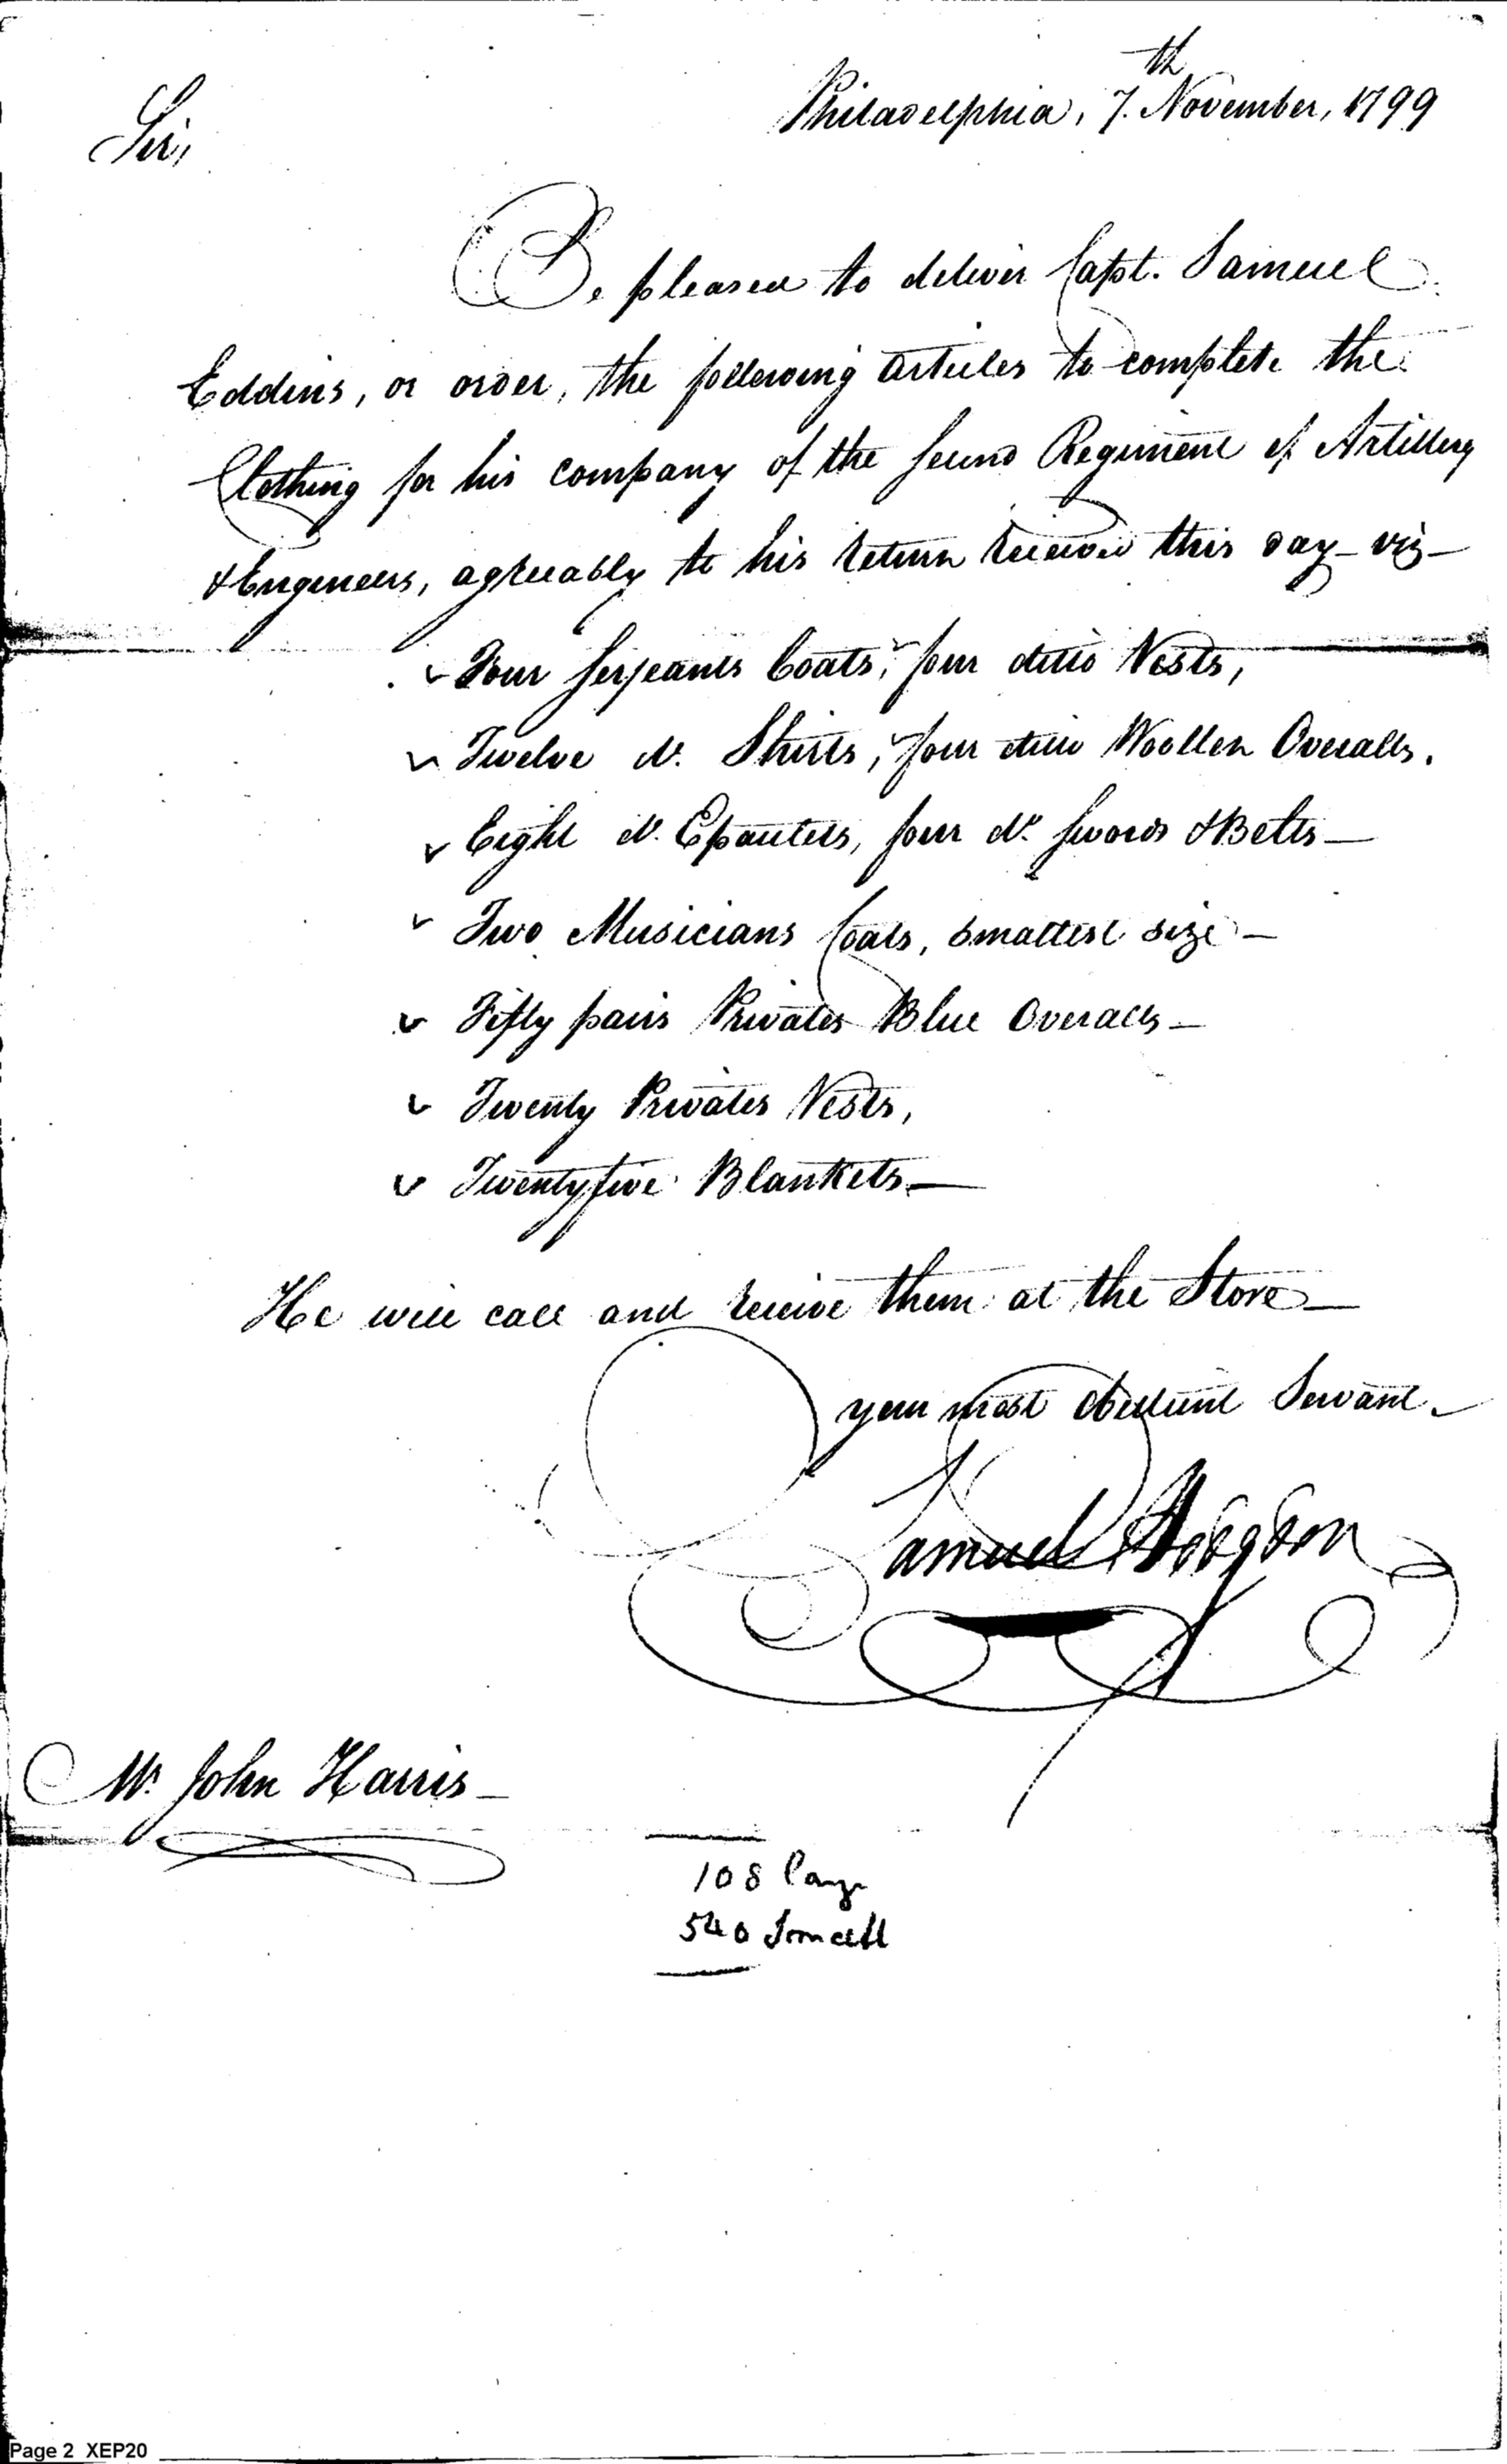 Philadelphia, 7th November, 1799
Sir,
Be pleased to deliver Capt. Samuel
Eddins, or order, the following articles to complete the
Clothing for his company of the second Regiment of Artillery
& Engineers, agreeably to his return received this day – viz –
Four Serjeants Coats, four ditto Vests,
Twelve do. Shirts, four ditto Woollen Overalls.
Eight do. Epauletts, four do. swords & Belts –
Two Musicians Coats, smallest size –
Fifty pairs Privates Blue Overalls –
Twenty Privates Vests,
Twenty five Blankets –
He will call and receive them at the Store –
your most obedient Servant.
Samuel Hodgdon
Mr. John Harris –
108 Large
540 Small
Page 2 XEP20